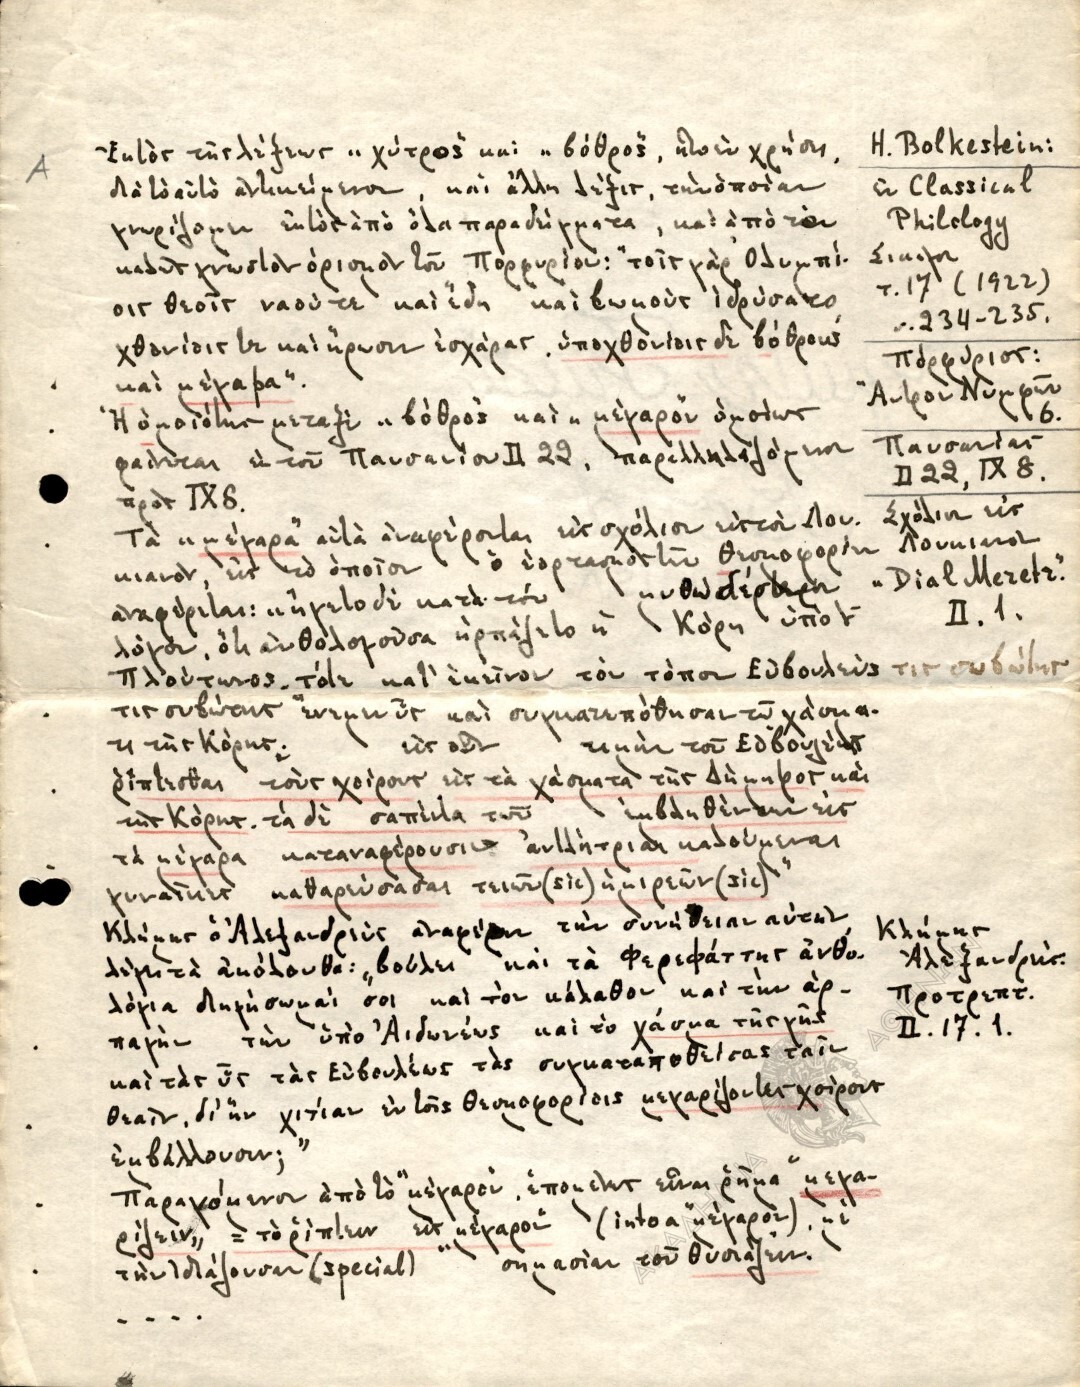 A
Ἐκτὸς τῆς λέξεως „ χύτρος̎ καὶ „ βόθρος̎, ἦτο ἐν χρήσει,
διὰ τὸ αὐτὸ ἀντικείμενον, καὶ ἄλλη λέξις, τὴν ὁποίαν
γνωρίζομεν ἐκτὸς ἀπὸ ὅλα παραδείγματα, καὶ ἀπὸ τὸν
καλῶς γνωστὸν ὁρισμὸν τοῦ Πορφυρίου: "τοῖς γὰρ Ὀλυμπί-
οις θεοῖς ναούς τε καὶ ἕδη καὶ βωμοὺς ἱδρύσατο,
χθονίοις τε καὶ ἥρωσιν ἐσχάρας, ὑποχθονίοις δὲ βόθρους
καὶ μέγαρα".
Ἡ ὁμοιότης μεταξὺ „ βόθρος̎ καὶ „ μέγαρον̎ ὁμοίως
φαίνεται ἐκ τοῦ Παυσανίου II 22, παρελληλιζόμενον
πρὸς IX 8.
Τὰ „ μέγαρα" αὐτὰ ἀναφέρονται εἰς σχόλιον εἰς τὸν Λου-
κιανόν, εἰς τὸ ὁποῖον ὁ ἑορτασμὸς τῶν Θεσμοφορίων
ἀναφέρεται: „ ἤγετο δὲ κατὰ τὸν μυθωδέστερον
λόγον, ὅτι ἀνθολογοῦσα ἡρπάζετο ἡ Κόρη ὑπὸ τ
Πλούτωνος. τότε κατ' ἐκεῖνον τὸν τόπον Εὐβουλεὺς τις συβώτης
τις συβώτης ἔνεμεν ὗς καὶ συγκατεπόθησαν τῷ χάσμα-
τι τῆς Κόρης; εἰς οὖν τιμὴν τοῦ Εὐβουλέως
ῥίπτεσθαι τοὺς χοίρους εἰς τὰ χάσματα τῆς Δήμητρος καὶ
τῆς Κόρης. τὰ δὲ σαπέντα τῶν ἐμβληθέντων εἰς
τὰ μέγαρα καταναφέρουσιν ἀντλήτριαι καλούμεναι
γυναῖκες καθαρεύσασαι τειῶν (sic) ἡμιρεῶν (sic)"
Κλήμης ὁ Ἀλεξανδρεὺς ἀναφέρων τὴν συνήθειαν αὐτὴν
λέγει τὰ ἀκόλουθα: „βούλει καὶ τὰ Φερεφάττης ἀνθο-
λόγια διηγήσωμαί σοι καὶ τὸν κάλαθον καὶ τὴν ἁρ-
παγὴν τὴν ὑπὸ Ἀιδωνέως καὶ τὸ χάσμα τῆς γῆς
καὶ τὰς ὗς τὰς Εὐβουλέως τὰς συγκαταποθείσας ταῖν
θεαῖν, δι' ἣν αἰτίαν ἐν τοῖς Θεσμοφορίοις μεγαρίζοντες χοίρους
ἐμβάλλουσιν;"
Παραγόμενον ἀπὸ τὸ "μέγαρον̎, ἑπομένως εἶναι ῥῆμα "μεγα-
ρίζειν„ = τὸ ῥίπτειν εἰς „μέγαρον" (into a "μέγαρον), μὲ
τὴν ἰδιάζουσαν (special) σημασίαν τοῦ θυσιάζειν.
- - - -
H. Bolkestein:
ἐν Classical
Philology
Σικάγον
τ. 17 (1922)
σ. 234-235.
Πορφύριος:
"Ἄντρον Νυμφῶν
6.
Παυσανίας
II 22, IX 8.
Σχόλιον εἰς
Λουκιανὸν
„Dial Meretr."
II. 1.
Κλήμης
Ἀλεξανδρεύς:
Προτρεπτ.
II. 17. 1.
ΑΚΑΔΗΜΙΑ ΑΘΗΝΩΝ